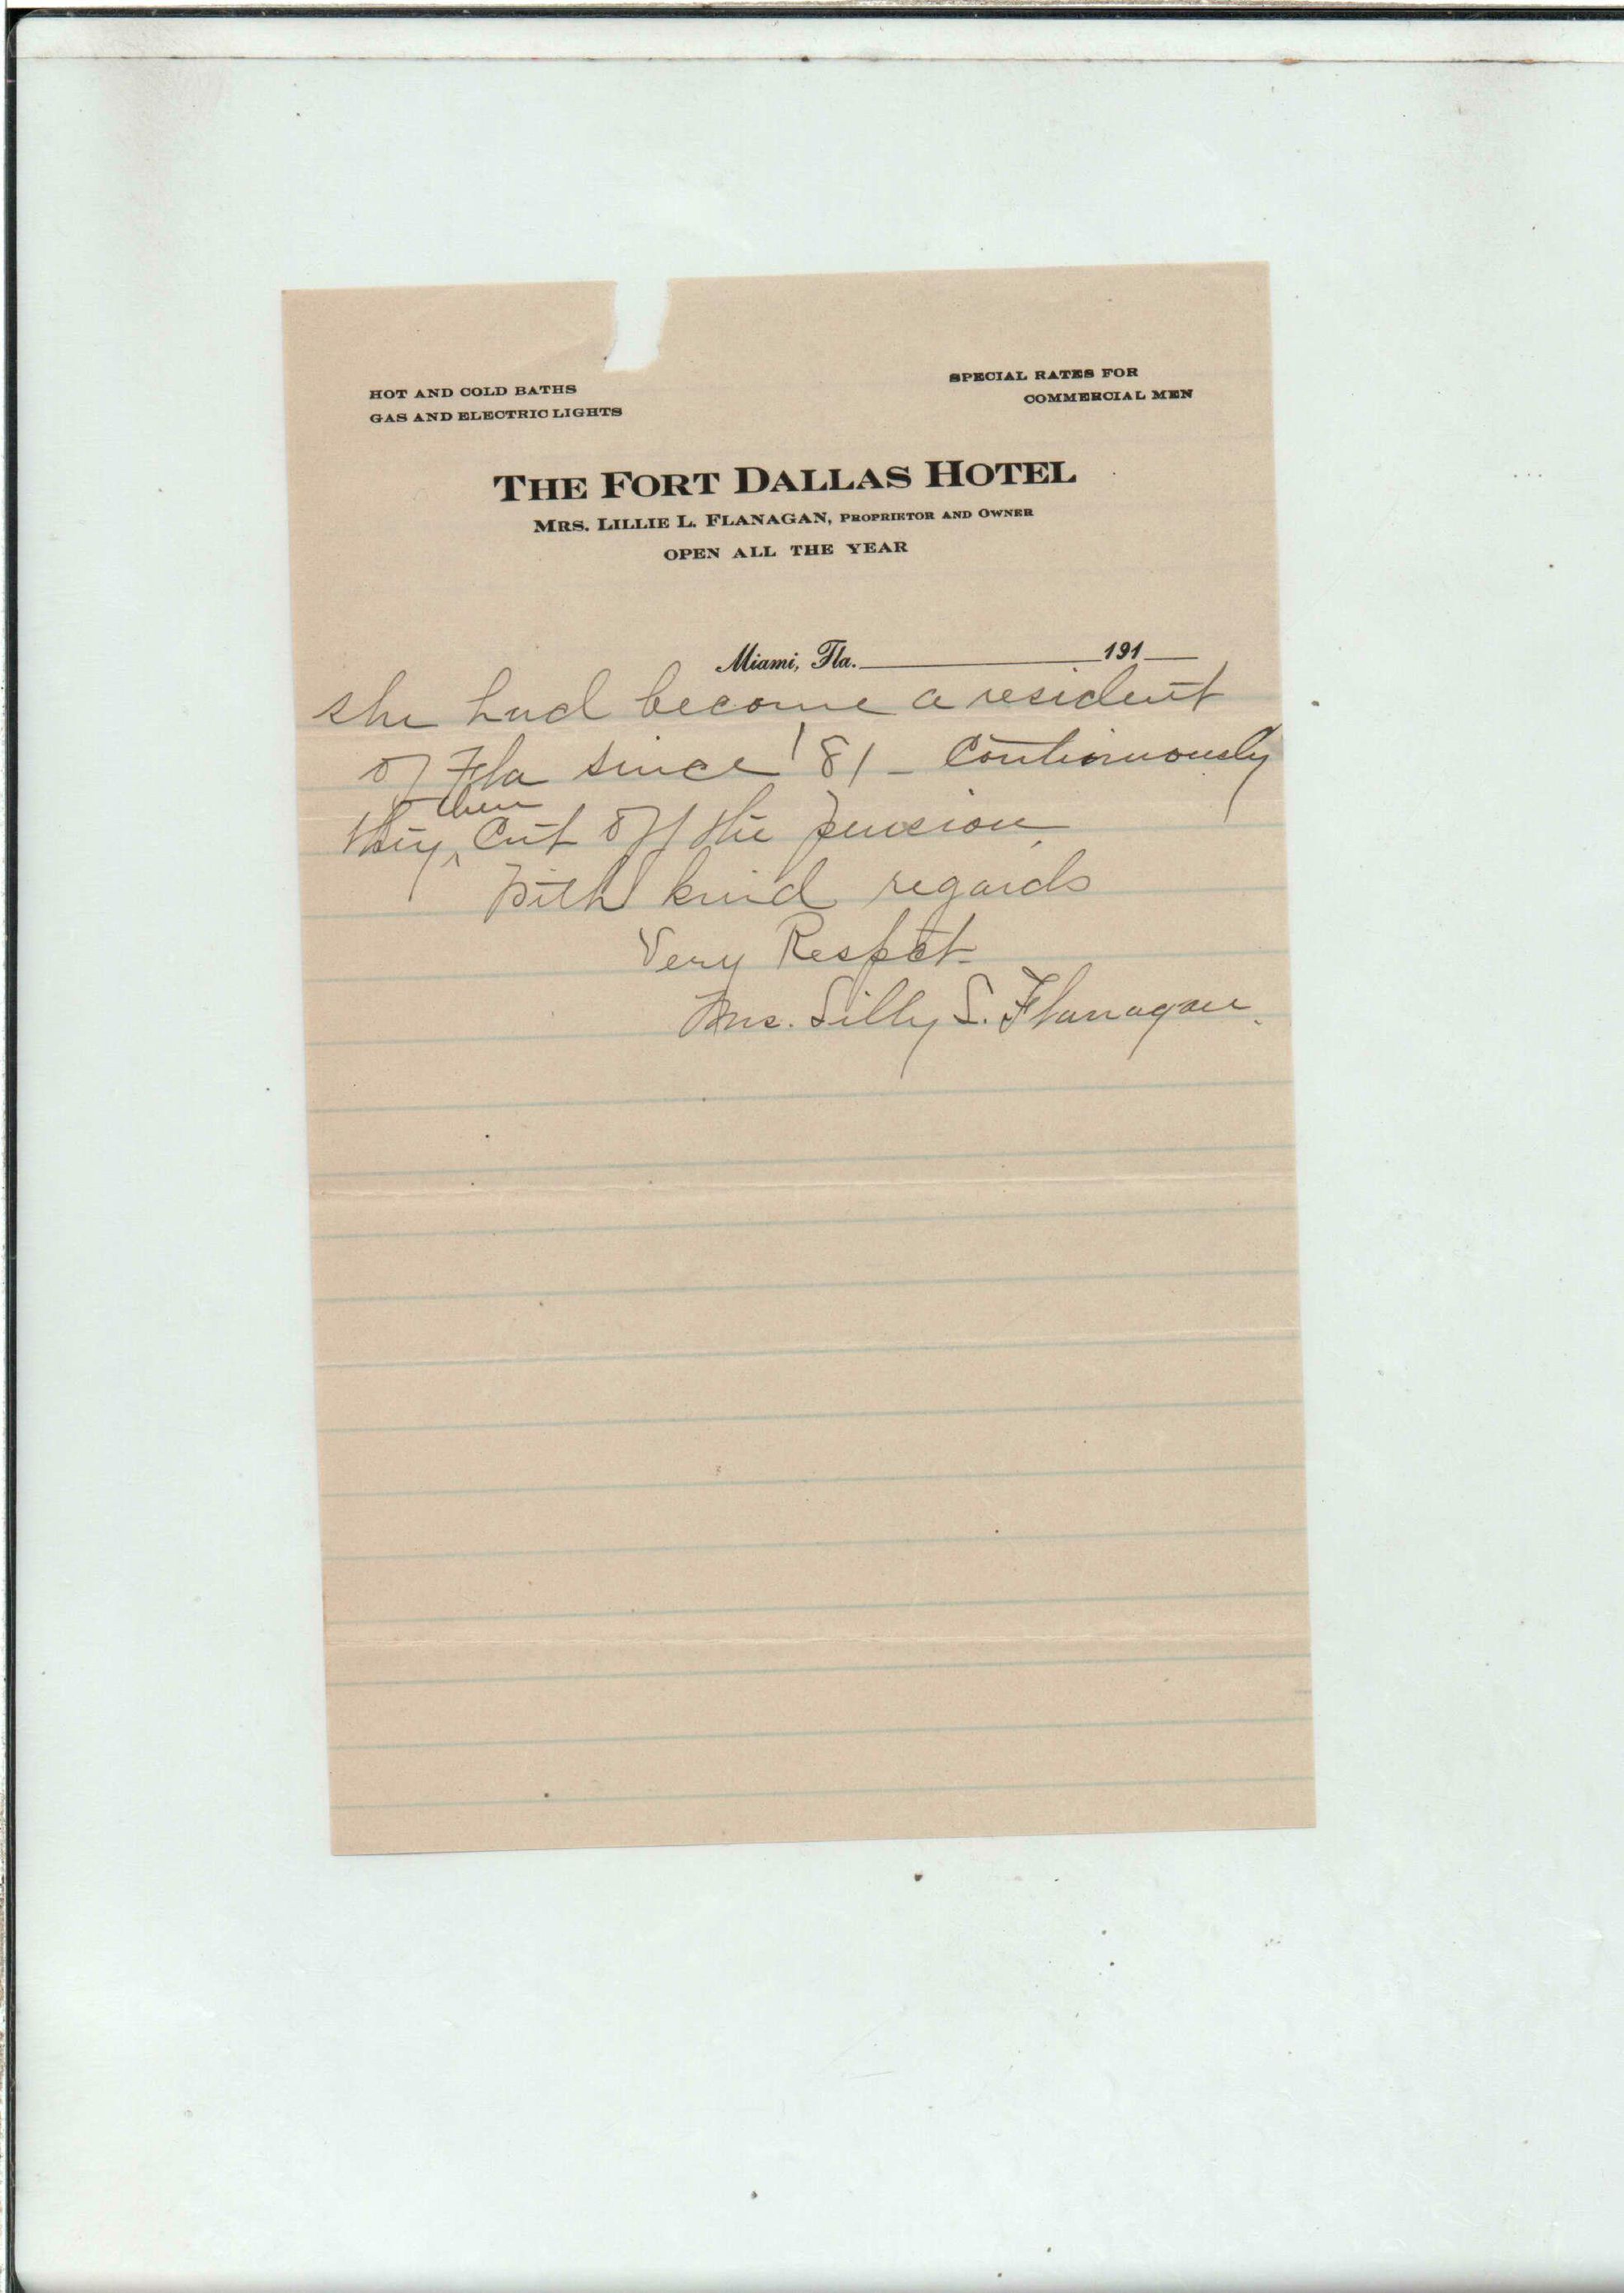 HOT AND COLD BATHS
GAS AND ELECTRIC LIGHTS
SPECIAL RATES FOR
COMMERCIAL MEN
THE FORT DALLAS HOTEL
MRS. LILLIE L. FLANAGAN, PROPRIETOR AND OWNER
OPEN ALL THE YEAR
Miami, Fla. 191
she had become a resident
of Fla since '81 - Continuously
then
they ^ Cut off the pension.
With kind regards
Very Respct.
Mrs. Lilly L. Flanagan.